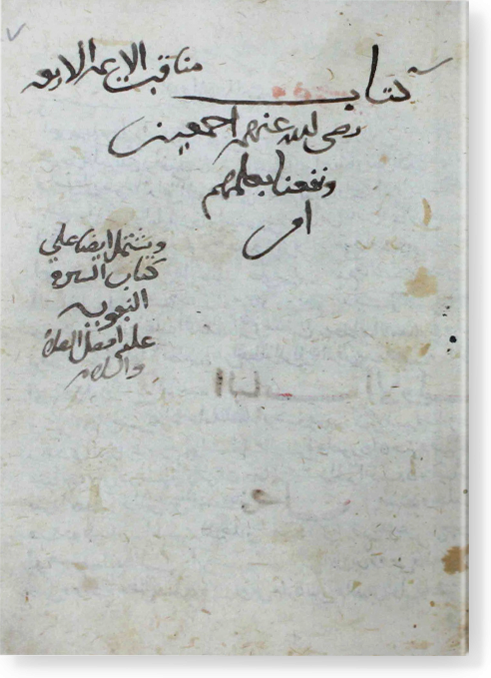 كتاب مناقب الائمه الاربعه
رضى الله عنهم اجمعين
ونفعنا بعلمهم
امر
ويشتمل ايضا علي
كتاب السيره
النبويه
على افضل الصلاة
والسلام